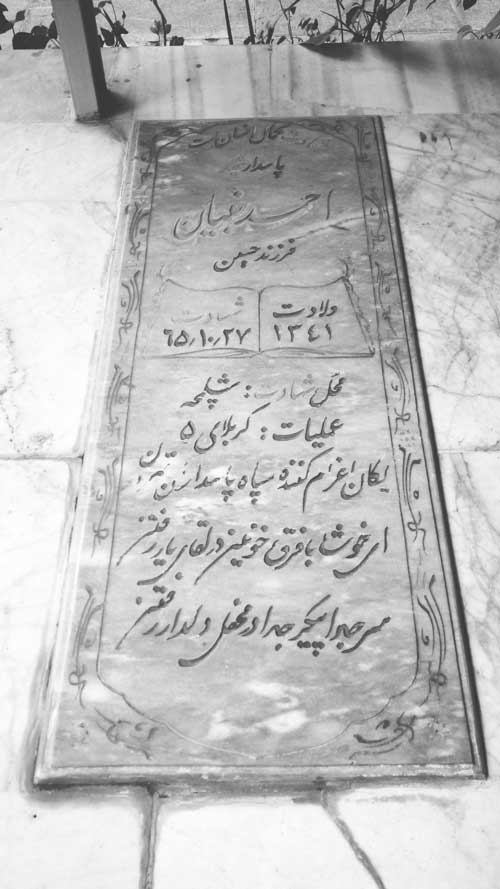 انسان است
پاسدار
احمد
فرزند حسین
ولادت شهادت
۱۳۴۱ ۶۵/۱۰/۲۷
محل شهادت : شلمچه
عملیات : کربلای ۵
یگان اعزام کننده سپاه پاسداران تهران
ای خوشا با فرق خونین در لقای یار رفتن
سر جدا پیکر جدا در محفل دلدار رفتن